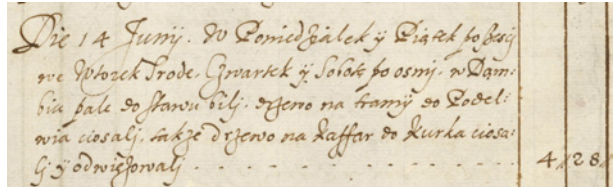 Die 14 Junij. W Poniedziałek y Piątek po sześć
we Wtorek Srode, Czwartek y Sobotę po osmij. w Dąm:
biu pale do stawu bilj. drzewo na tramij do Podel:
wia ciosalj. także drzewo na kaffar do kurka ciosa:
lj y odwięzowalj . . . . . . . . . . 4 // 28 //